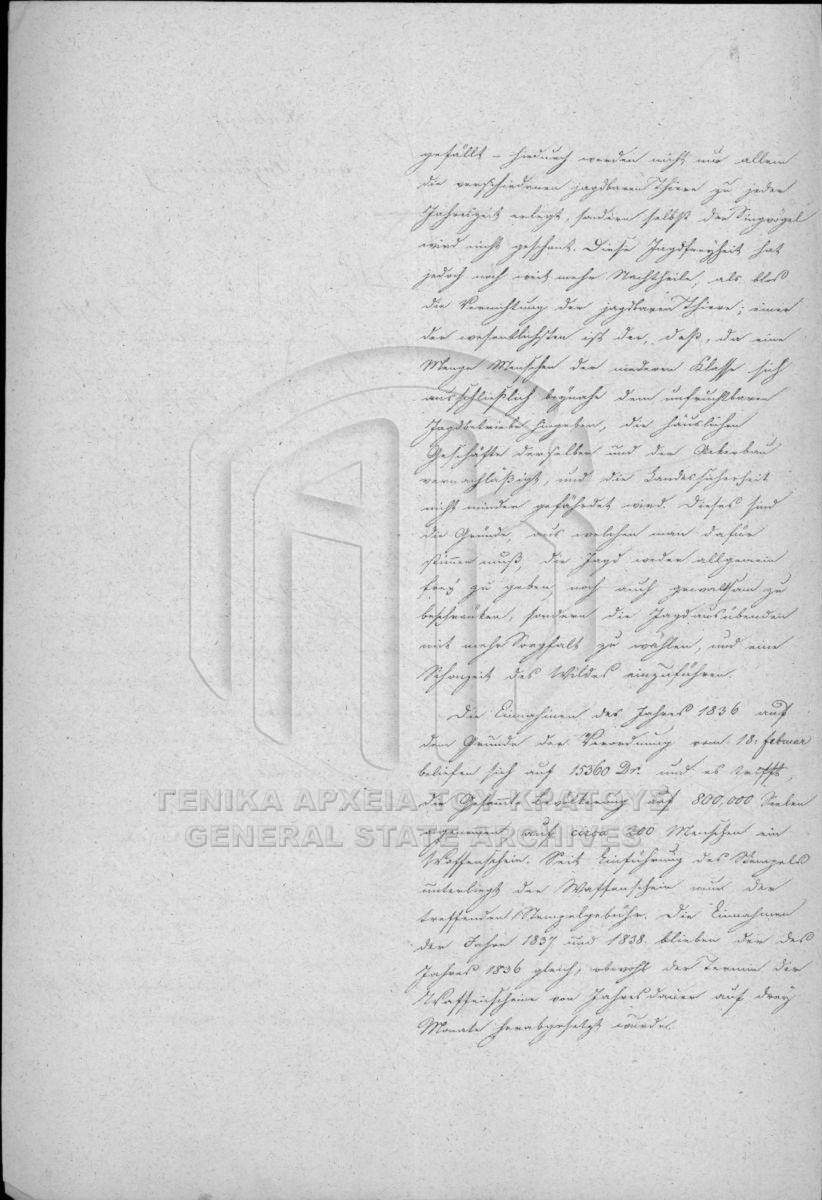 gefällt – hiedurch werden nicht nur allein
die verschiedenen jagdbaren Thiere zu jeder
Jahreszeit erlegt, sondern selbst der Singvögel
wird nicht geschont. Diese Jagdfreyheit hat
jedoch noch weit mehr Nachtheile, als blos
die Vernichtung der jagdbaren Thiere; einer
der wesentlichsten ist der, daß, da eine
Menge Menschen der niederen Klasse sich
ausschließlich beynahe dem unfruchtbaren
Jagdbetriebe hingeben, die häuslichen
Geschäfte derselben und der Ackerbau
vernachläßigt, und die Landessicherheit
nicht minder gefährdet wird. Dieses sind
die Gründe, aus welchen man dafür
stimmen muß, die Jagd weder allgemein
frey zu geben, noch auch gewaltsam zu
beschränken, sondern die Jagdausübenden
mit mehr Sorgfalt zu wählen, und eine
Schonzeit des Wildes einzuführen.
Die Einnahmen des Jahres 1836 auf
dem Grunde der Verordnung vom 18. Februar
beliefen sich auf 15360 Dr. und es trifft,
die Gesammtbevölkerung auf 800,000 Seelen
angenommen, auf circa 200 Menschen ein
Waffenschein. Seit Einführung des Stempels
unterliegt der Waffenschein nun der
treffenden Stempelgebühr. Die Einnahmen
der Jahre 1837 und 1838 blieben der des
Jahres 1836 gleich, obwohl der Termin der
Waffenscheine von Jahresdauer auf drey
Monate herabgesetzt wurde.
ΓΕΝΙΚΑ ΑΡΧΕΙΑ ΤΟΥ ΚΡΑΤΟΥΣ
GENERAL STATE ARCHIVES